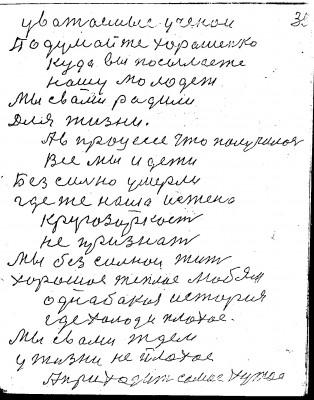 уважаемые ученои 35
Подумайте хорошенко
куда вы посылаете
нашу молодеж
Мы свами радили
для жизни.
Ав процессе что получился
Все мы и дети
Без силно умерли
где же наша истена
Кругозоркост
не признат
Мы без силнои жит
хорошое теплое
однабакая история
где холод и плохое.
Мы свами ждем
у жизни не плохое
Априходит самое хужое